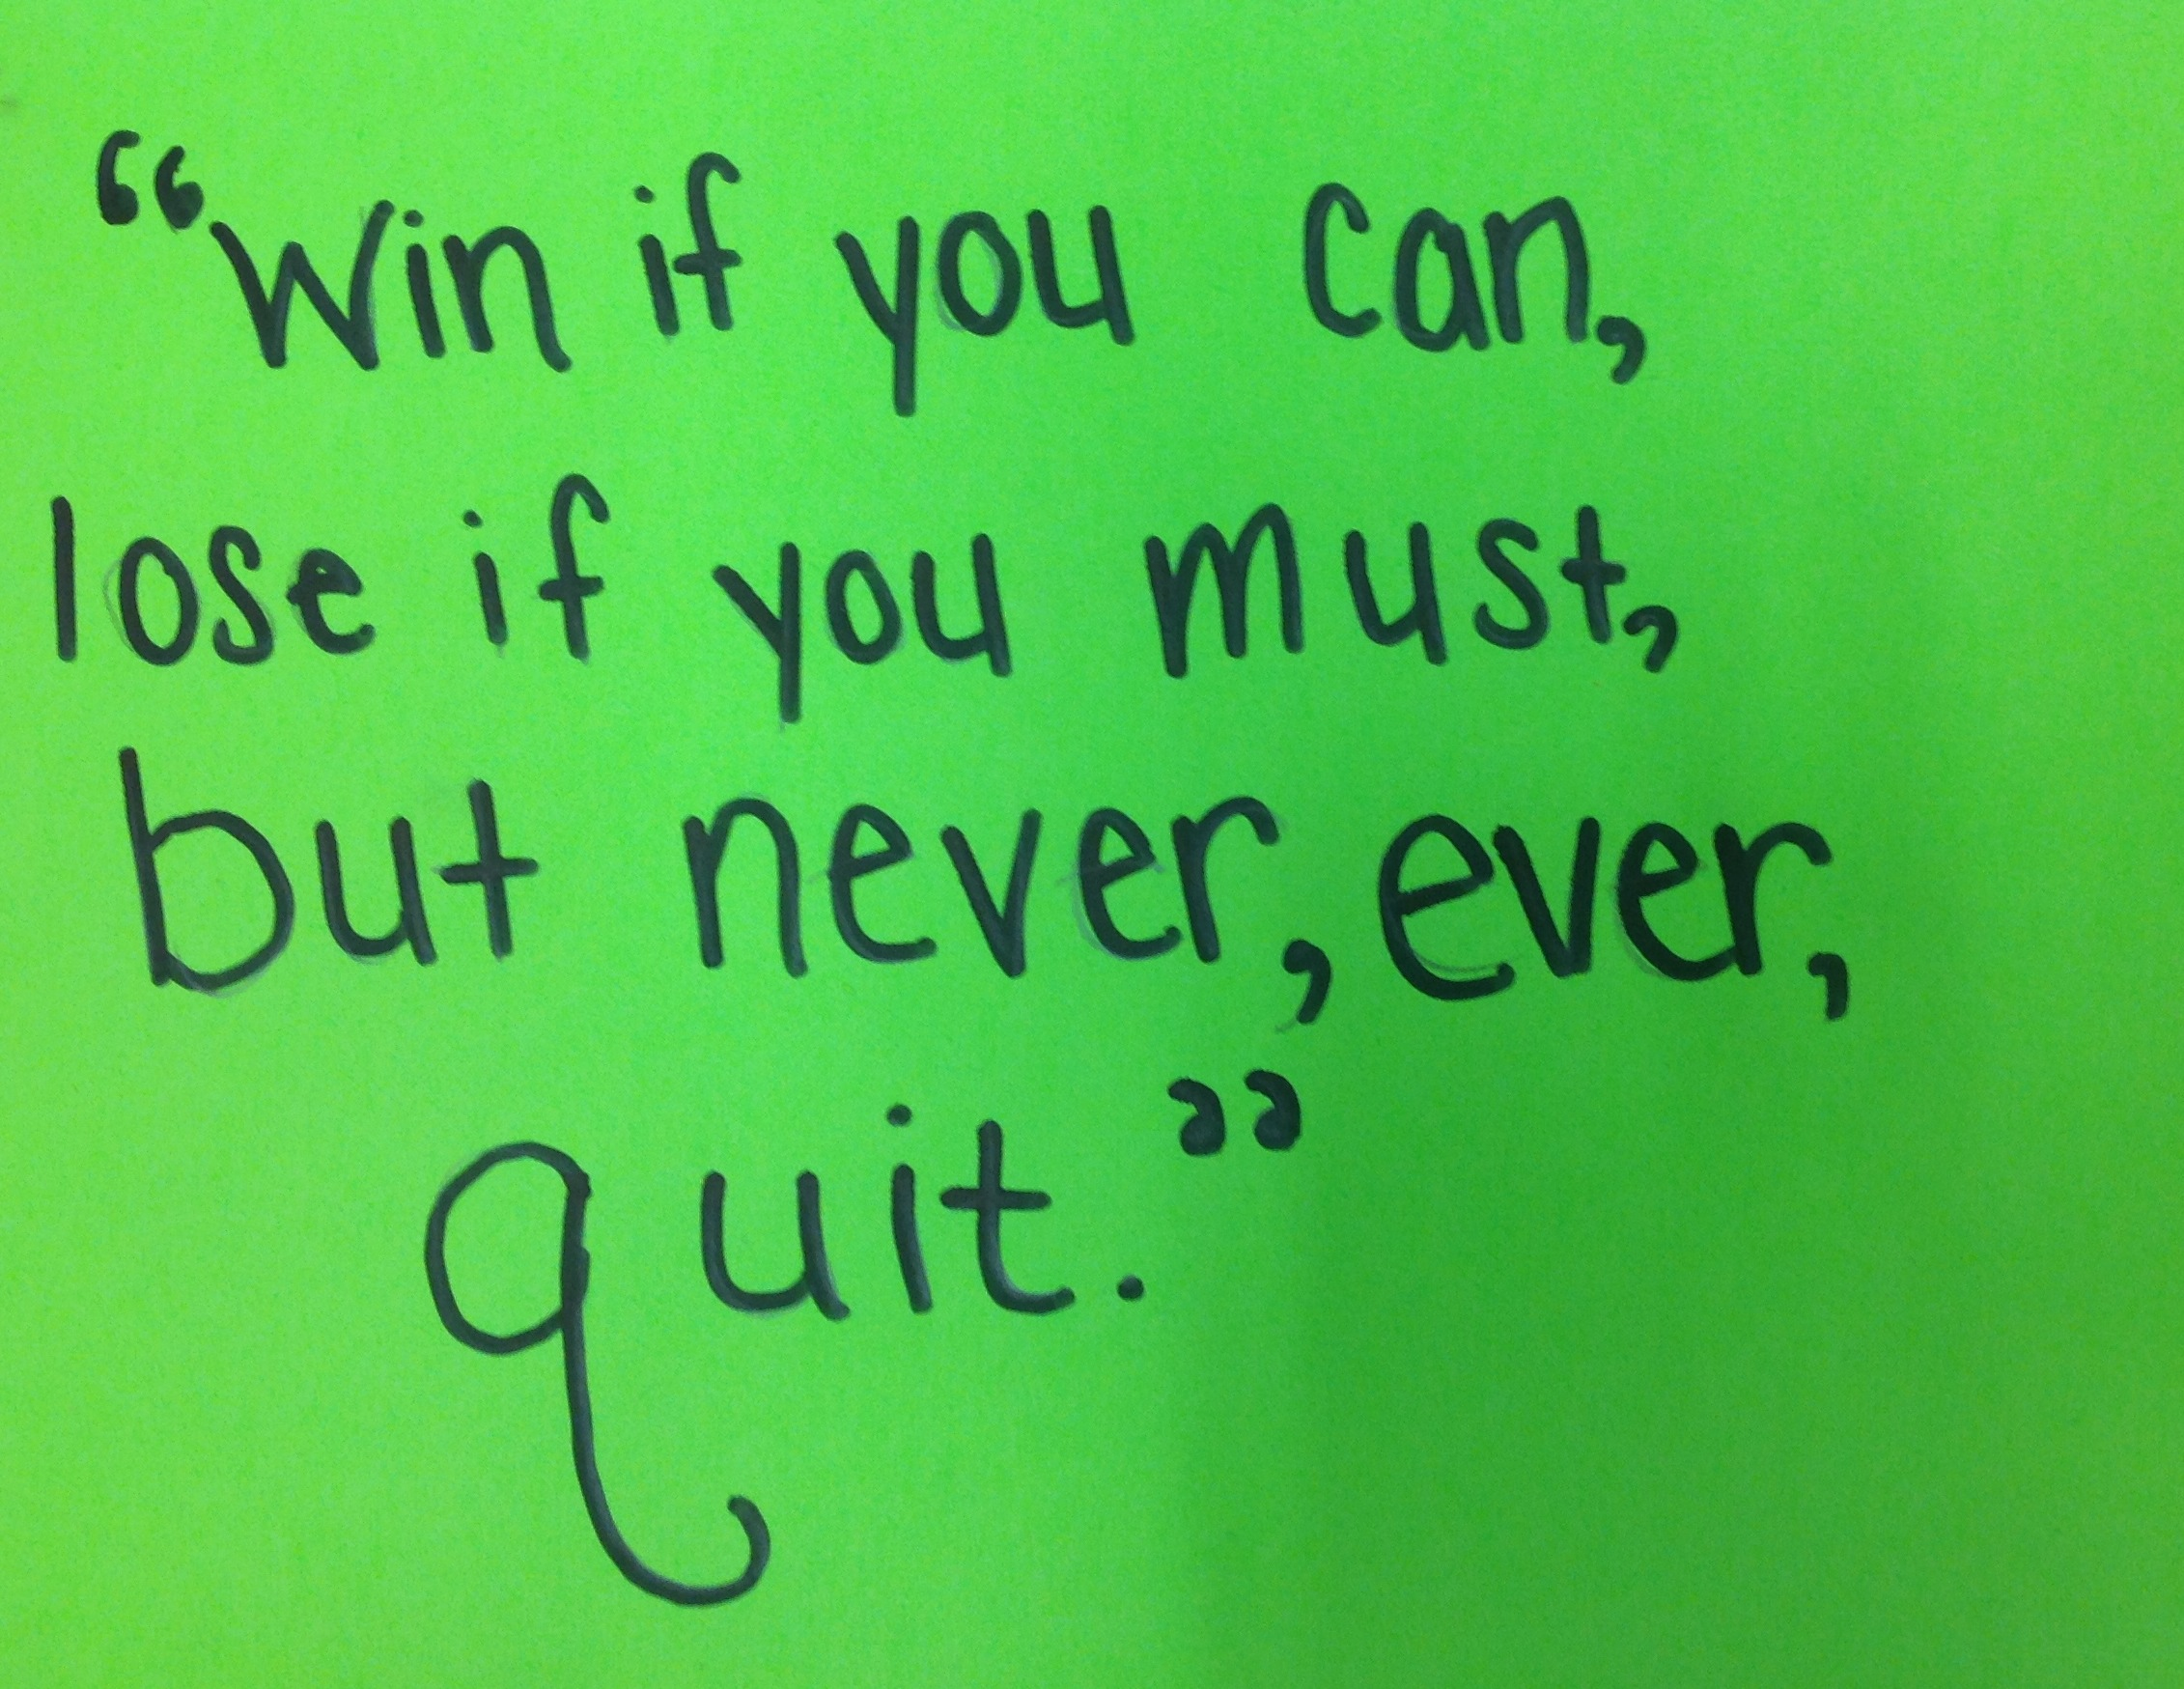 “Win if you can,
lose if you must,
but never, ever,
quit.”